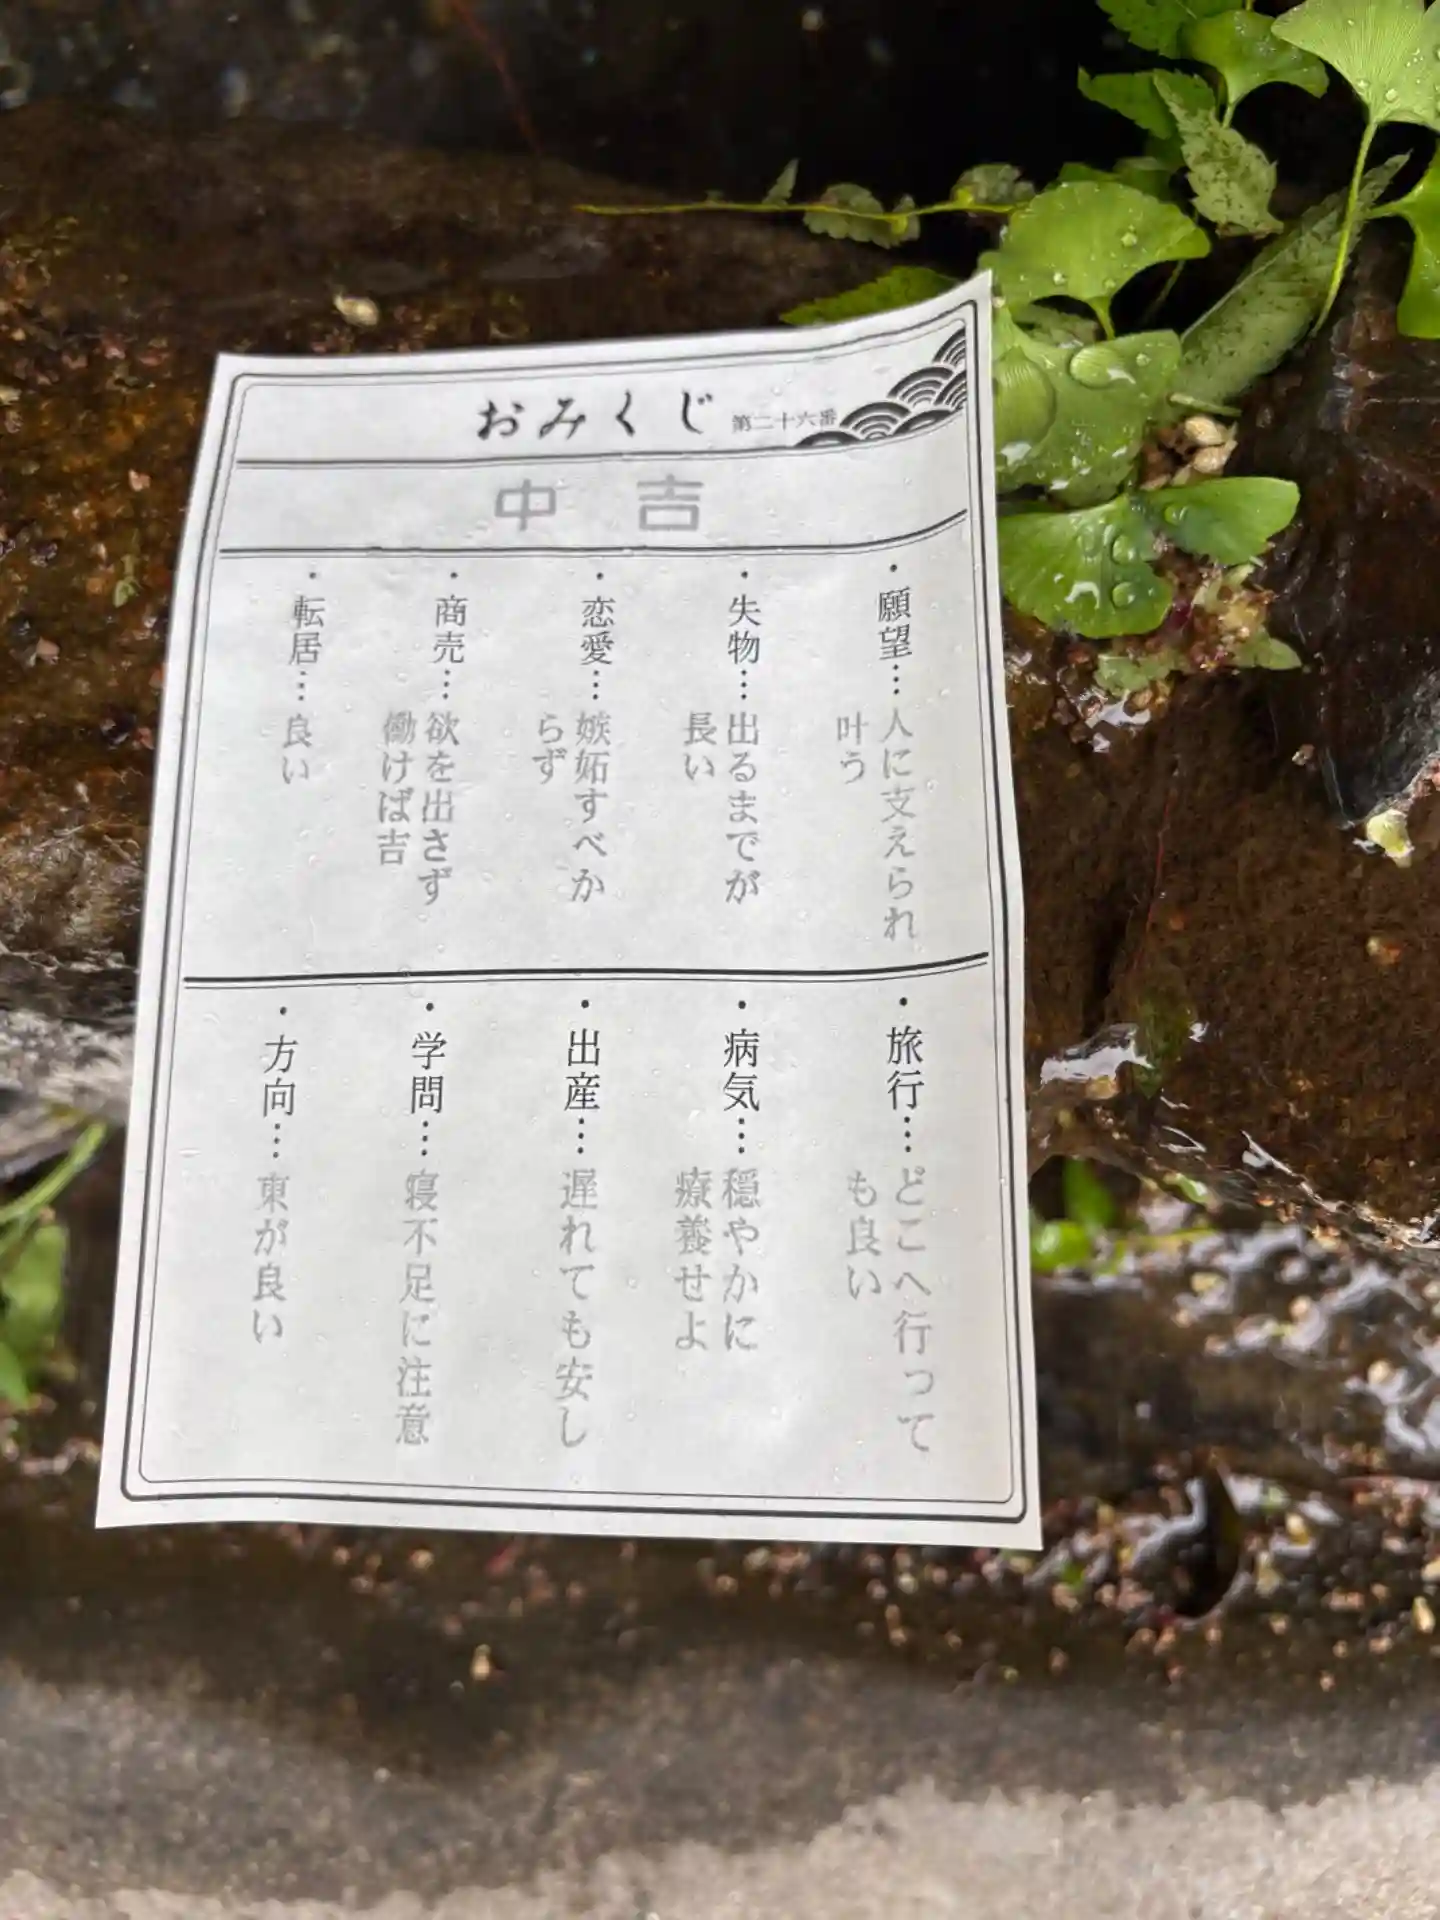 おみくじ 第二十六番
中吉
・願望…人に支えられ
叶う
・失物…出るまでが
長い
・恋愛…嫉妬すべか
らず
・商売…欲を出さず
働けば吉
・転居…良い
・旅行…どこへ行って
も良い
・病気…穏やかに
療養せよ
・出産…遅れても安し
・学問…寝不足に注意
・方向…東が良い